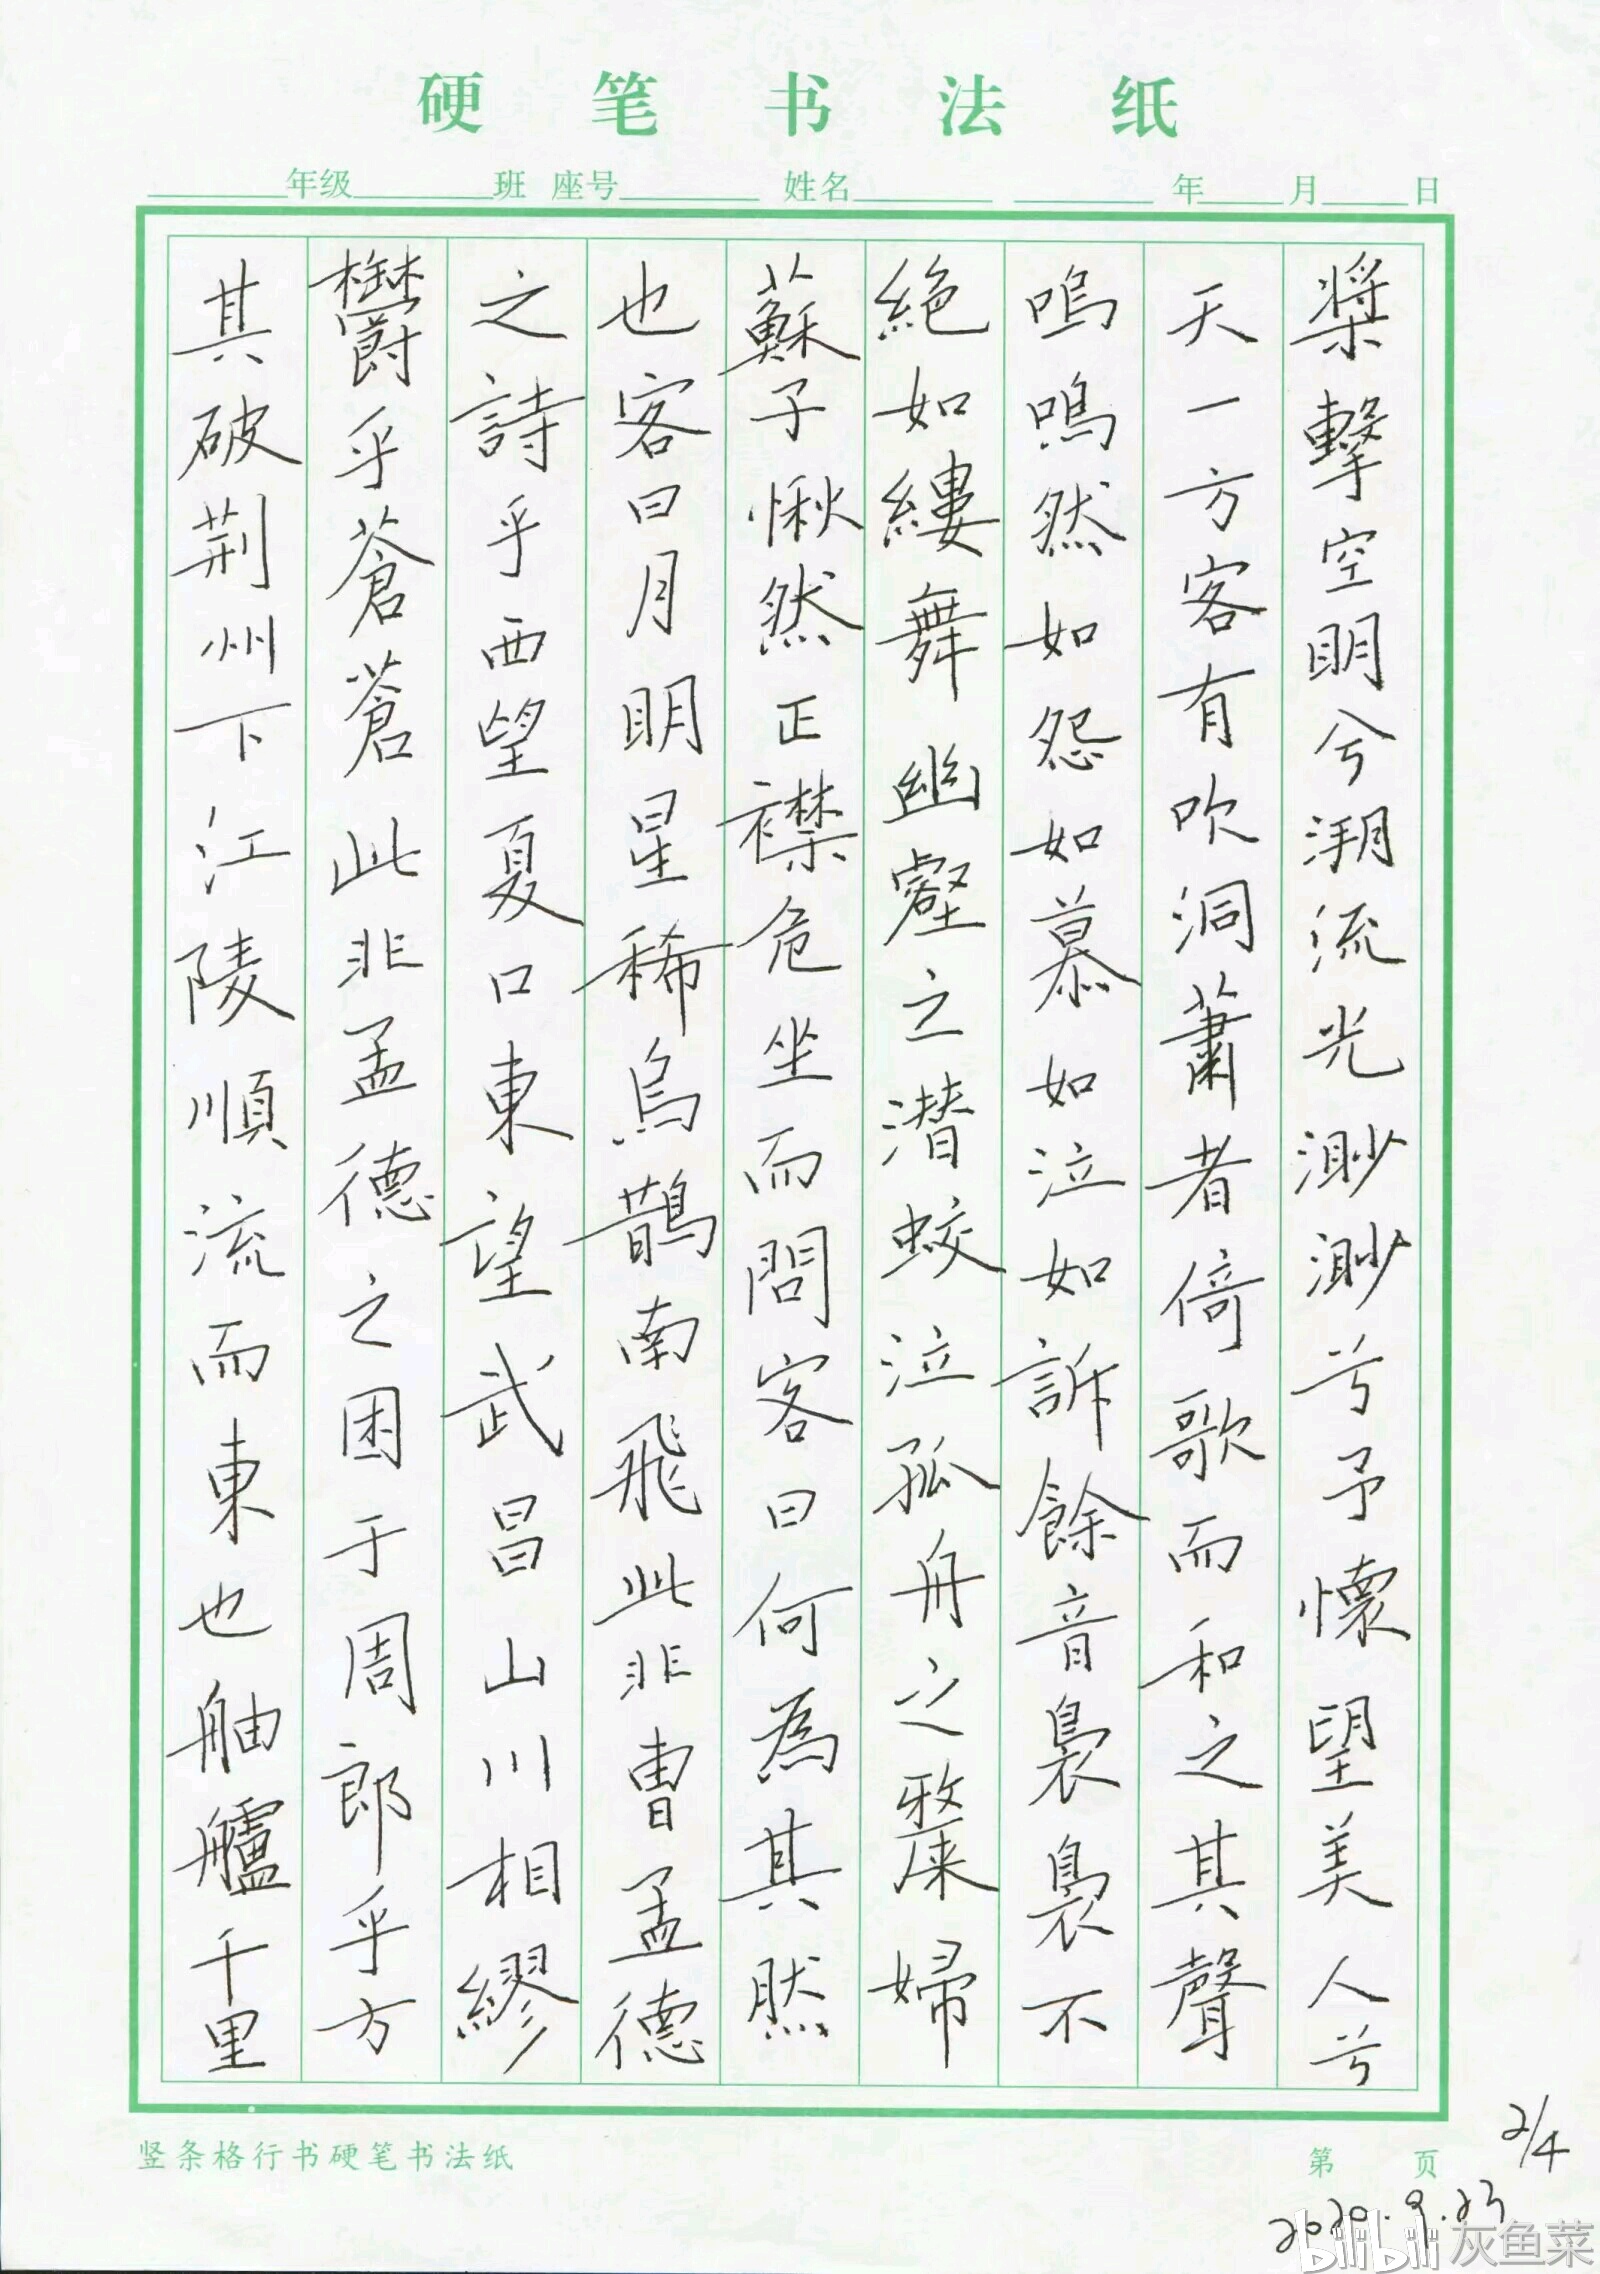 硬笔书法纸
年级 班 座号 姓名 年 月 日
槳擊空明兮泝流光渺渺兮予懷望美人兮
天一方客有吹洞蕭者倚歌而和之其聲
嗚嗚然如怨如慕如泣如訴餘音裊裊不
絕如縷舞幽壑之潛蛟泣孤舟之嫠婦
蘇子愀然正襟危坐而問客曰何為其然
也客曰月明星稀烏鵲南飛此非曹孟德
之詩乎西望夏口東望武昌山川相繆
鬱乎蒼蒼此非孟德之困于周郎乎方
其破荆州下江陵順流而東也舳艫千里
竖条格行书硬笔书法纸
第 页
2/4
2020.9.23
bilibili 灰鱼菜